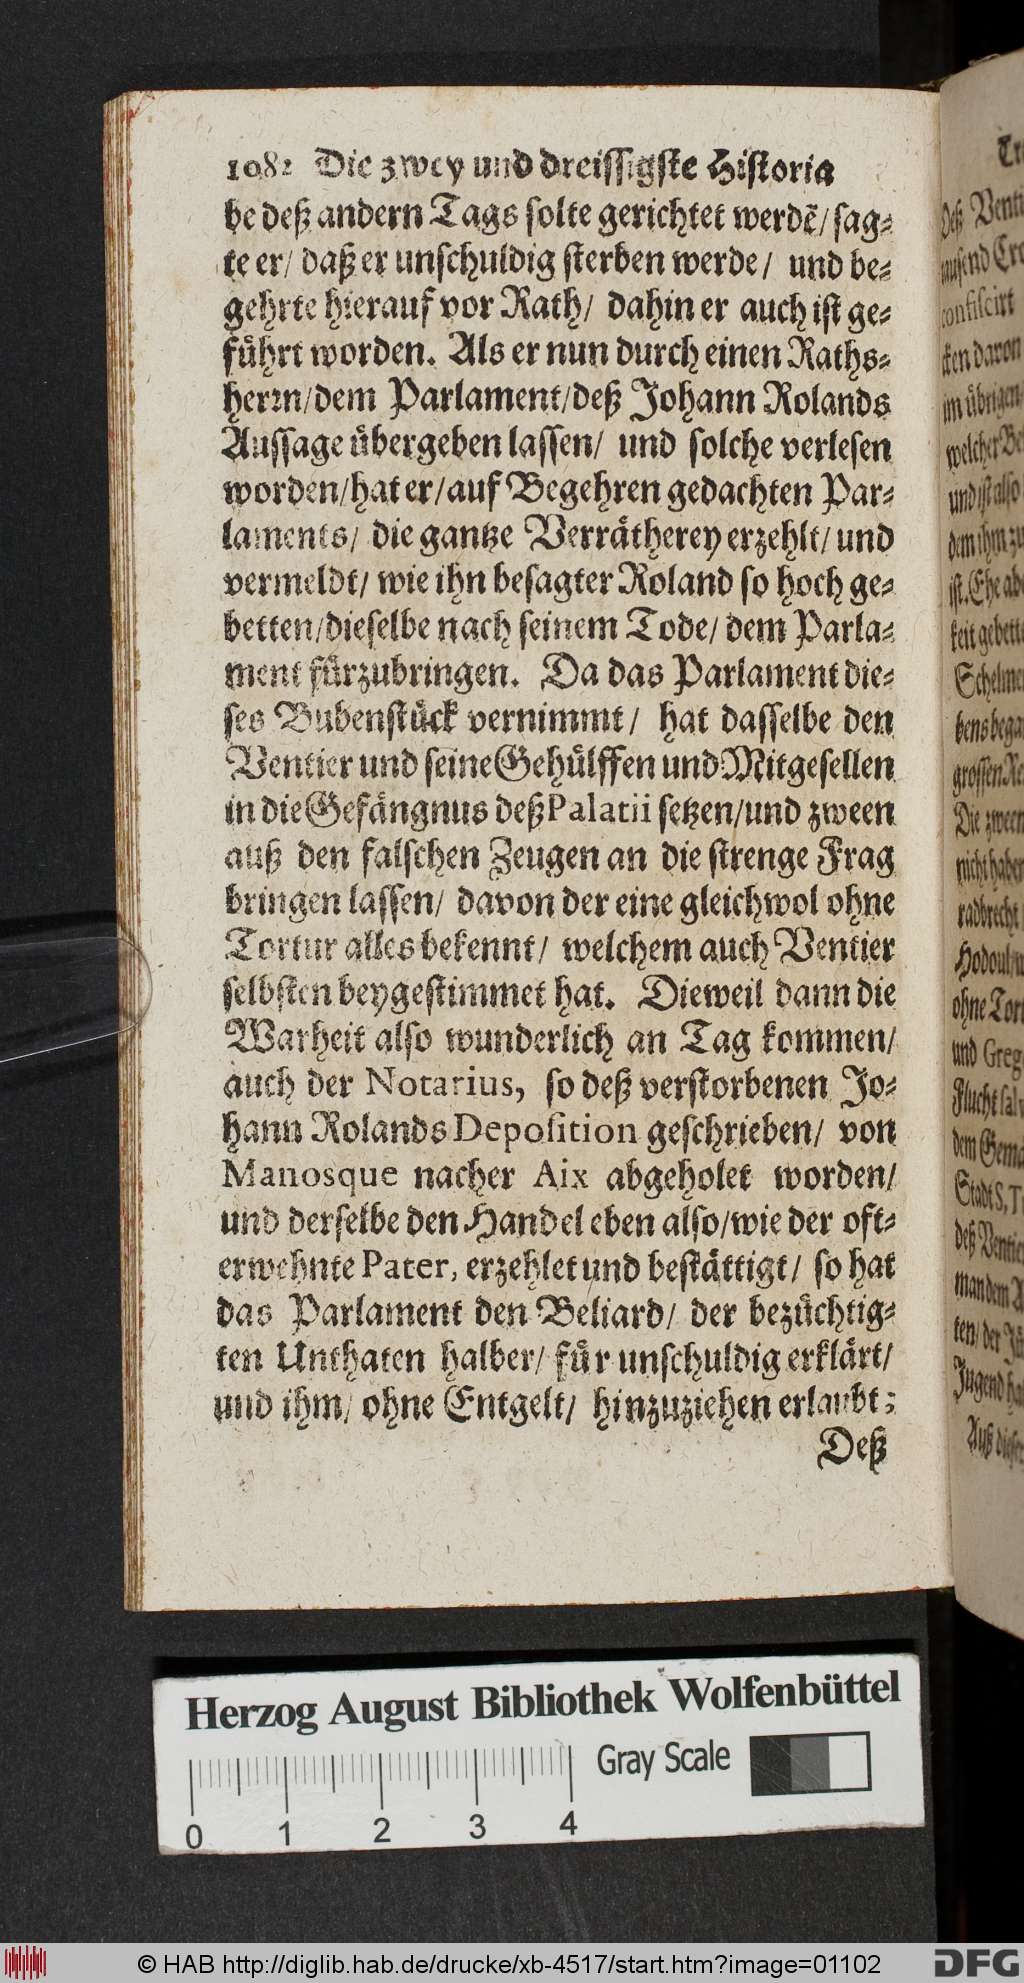 1082 Die zwey und dreissigste Historia
be deß andern Tags solte gerichtet werdẽ/ sag-
te er/ daß er unschuldig sterben werde/ und be-
gehrte hierauf vor Rath/ dahin er auch ist ge-
führt worden. Als er nun durch einen Raths-
herrn/dem Parlament/deß Johann Rolands
Aussage übergeben lassen/ und solche verlesen
worden/hat er/auf Begehren gedachten Par-
laments/ die gantze Verrätherey erzehlt/ und
vermeldt/ wie ihn besagter Roland so hoch ge-
betten/dieselbe nach seinem Tode/ dem Parla-
ment fürzubringen. Da das Parlament die-
ses Bubenstück vernimmt/ hat dasselbe den
Ventier und seine Gehülffen und Mitgesellen
in die Gefängnus deß Palatii setzen/und zween
auß den falschen Zeugen an die strenge Frag
bringen lassen/ davon der eine gleichwol ohne
Tortur alles bekennt/ welchem auch Ventier
selbsten beygestimmet hat. Dieweil dann die
Warheit also wunderlich an Tag kommen/
auch der Notarius, so deß verstorbenen Jo-
hann Rolands Deposition geschrieben/ von
Manosque nacher Aix abgeholet worden/
und derselbe den Handel eben also/wie der oft-
erwehnte Pater, erzehlet und bestättigt/ so hat
das Parlament den Beliard/ der bezüchtig-
ten Unthaten halber/ für unschuldig erklärt/
und ihm/ ohne Entgelt/ hinzuziehen erlaubt:
Deß
deß Venti
tausend Cro
confiscirt
cken davon
im übrigen
welcher Be
und ist also
dem ihm zu
ist. Ehe abe
keit gebette
Schelme
bens bega
grossen Re
Die zween
nicht haben
radbrecht
Hodoul/u
ohne Tort
und Greg
Flucht salv
dem Gema
Stadt S. T
deß Ventie
man dem A
ten/ der Jü
Jugend ha
Auß diese
Herzog August Bibliothek Wolfenbüttel
Gray Scale
0 1 2 3 4
© HAB http://diglib.hab.de/drucke/xb-4517/start.htm?image=01102
DFG